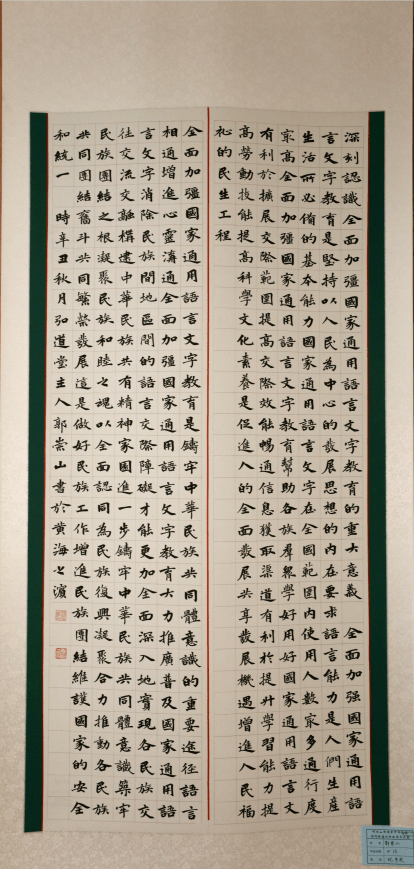 深刻認識全面加強國家通用語言文字教育的重大意義 全面加強國家通用語
言文字教育是堅持以人民為中心的發展思想的内在要求語言能力是人們生産
生活所必備的基本能力國家通用語言文字在全國範圍内使用人數冣多通行度
冣高全面加強國家通用語言文字教育幫助各族羣眾學好用好國家通用語言文
有利於擴展交際範圍提高交際效能暢通信息獲取渠道有利於提升學習能力提
高勞動技能提高科學文化素養是促進人的全面發展共享發展機遇增進人民福
祉的民生工程
全面加強國家通用語言文字教育是鑄牢中華民族共同體意識的重要途徑語言
相通增進心靈溝通全面加強國家通用語言文字教育大力推廣普及國家通用語
言文字消除民族間地區間的語言交際障礙才能更加全面深入地實現各民族交
往交流交融構建中華民族共有精神家園進一步鑄牢中華民族共同體意識築牢
民族團結之根凝聚民族和睦之魂以全面認同為民族復興凝聚合力推動各民族
共同團結奮斗共同繁榮發展這是做好民族工作增進民族團結維護國家的安全
和統一 時辛丑秋月弘道堂主人郭崇山書於黄海之濱